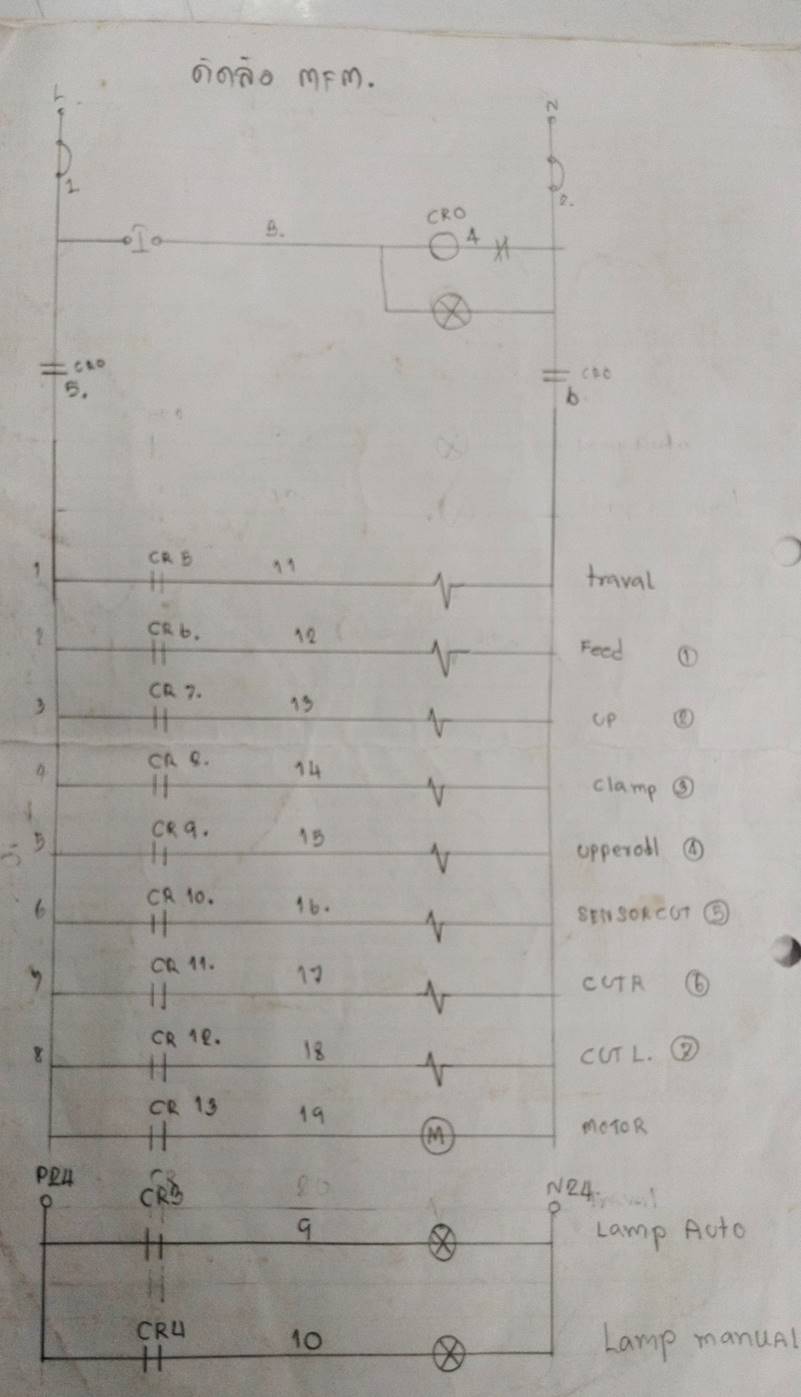 ตัดล้อ MFM.
L N
1 2.
CRO
3. 4
CRO CRO
5. 6
1 CR 5 11 traval
2 CR 6. 12 Feed ①
3 CR 7. 13 UP ②
4 CR 8. 14 clamp ③
5 CR 9. 15 ④
6 CR 10. 16. SENSOR CUT ⑤
7 CR 11. 17 CUT R ⑥
8 CR 12. 18 CUT L. ⑦
CR 13 19 MOTOR
M
P24 N24.
CR3 9 Lamp Auto
CR4 10 Lamp manUAL